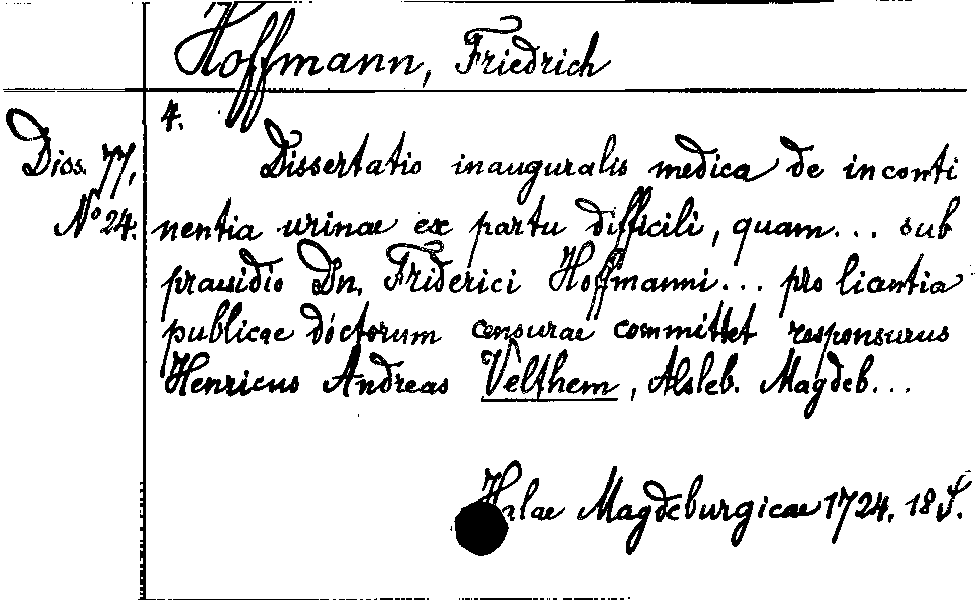 Hoffmann, Friedrich
4.
Diss. 77,
No 24.
Dissertatio inauguralis medica de inconti
nentia urinae ex partu difficili, quam... sub
praesidio Dn. Friderici Hoffmanni... pro licentia
publicae doctorum censurae committet responsurus
Henricus Andreas Velthem, Alsleb. Magdeb...
Halae Magdeburgicae 1724. 18 S.